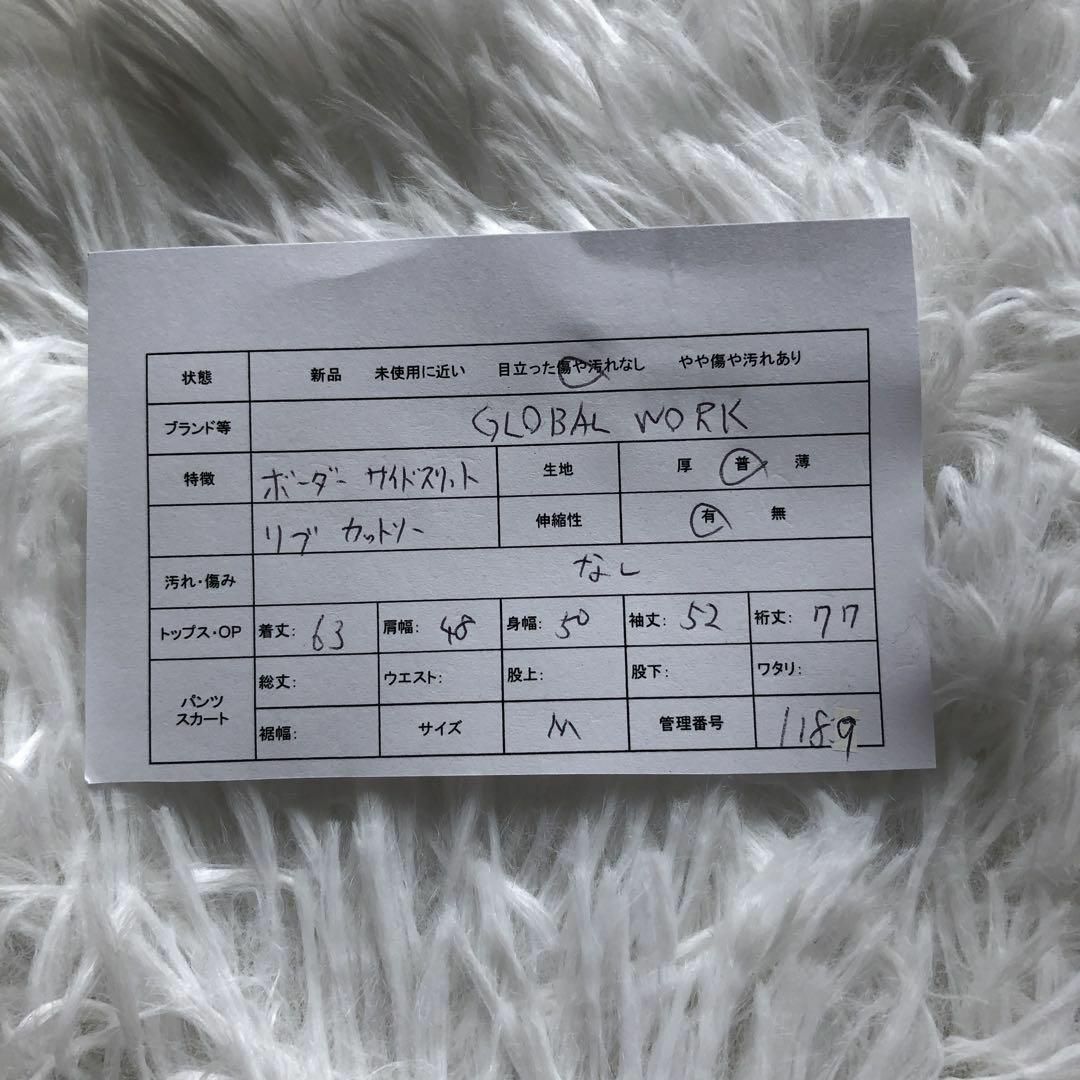 状態 新品 未使用に近い 目立った傷や汚れなし やや傷や汚れあり
ブランド等 GLOBAL WORK
特徴 ボーダー サイドスリット 生地 厚 普 薄
リブ カットソー 伸縮性 有 無
汚れ・傷み なし
トップス・OP 着丈: 63 肩幅: 48 身幅: 50 袖丈: 52 裄丈: 77
パンツ スカート 総丈: ウエスト: 股上: 股下: ワタリ:
裾幅: サイズ M 管理番号 1189